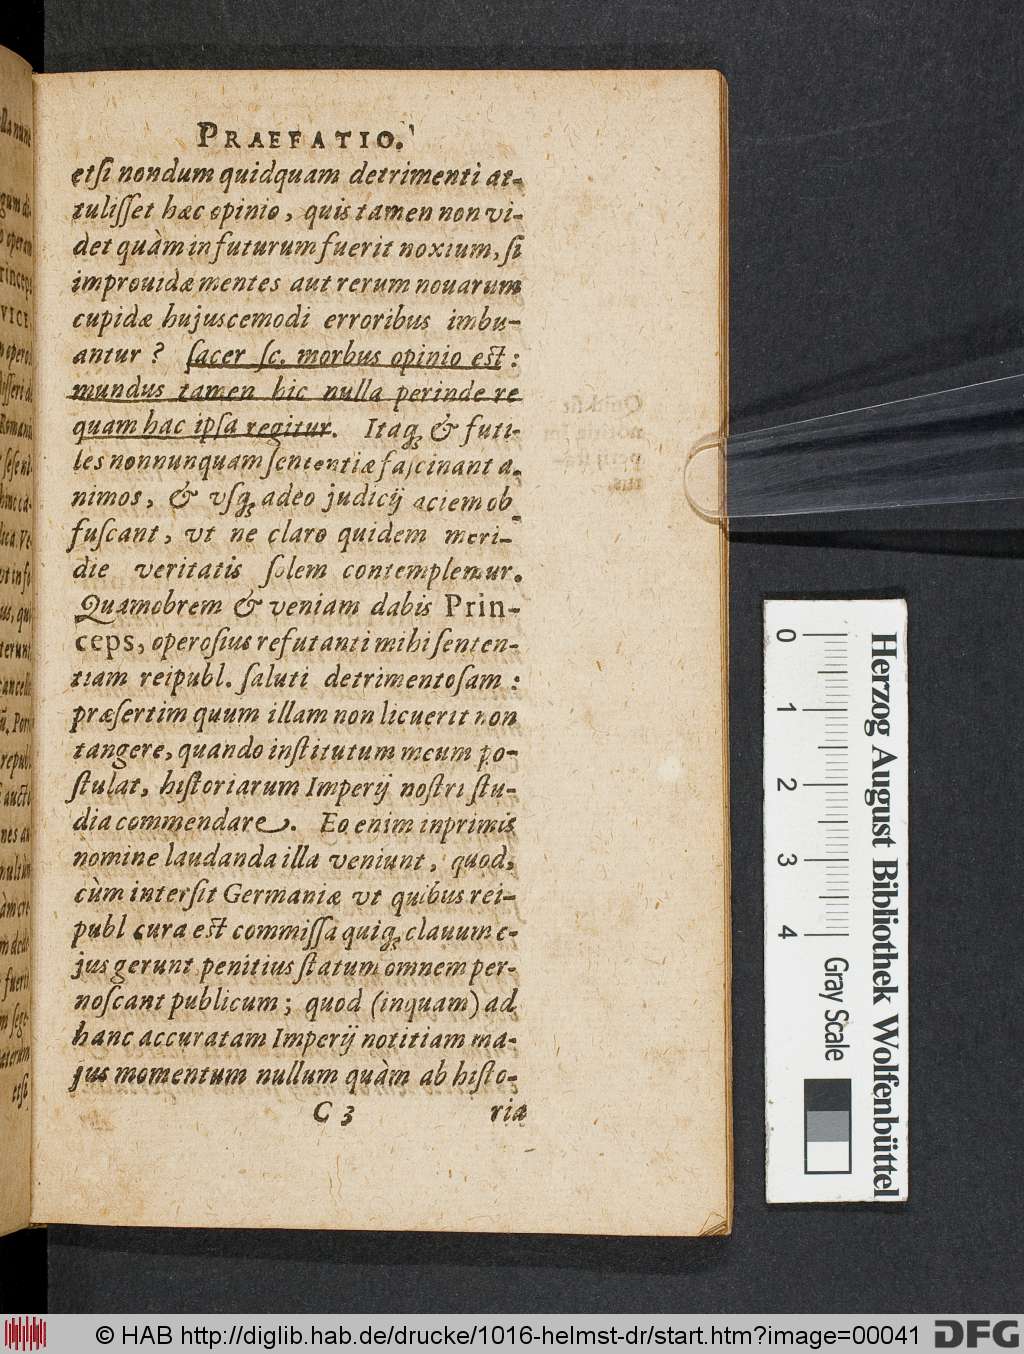 PRAEFATIO.
etſi nondum quidquam detrimenti at-
tuliſſet hæc opinio, quis tamen non vi-
det quàm in futurum fuerit noxium, ſi
improuidæ mentes aut rerum nouarum
cupidæ hujuscemodi erroribus imbu-
antur? ſacer ſc. morbus opinio est:
mundus tamen hic nulla perinde re
quam hac ipſa regitur. Itaq; & futi-
les nonnunquam ſententiæ faſcinant a-
nimos, & vſq; adeo judicij aciem ob-
fuſcant, vt ne claro quidem meri-
die veritatis ſolem contemplemur.
Quamobrem & veniam dabis Prin-
ceps, operoſius refutanti mihi ſenten-
tiam reipubl. ſaluti detrimentoſam:
præſertim quum illam non licuerit non
tangere, quando inſtitutum meum po-
ſtulat, hiſtoriarum Imperij noſtri ſtu-
dia commendare. Eo enim inprimis
nomine laudanda illa veniunt, quod,
cùm interſit Germaniæ vt quibus rei-
publ cura est commiſſa quiq; clauum e-
jus gerunt penitius ſtatum omnem per-
noſcant publicum; quod (inquam) ad
hanc accuratam Imperij notitiam ma-
jus momentum nullum quàm ab hiſto-
C 3 riæ
0 1 2 3 4
Herzog August Bibliothek Wolfenbüttel
Gray Scale
© HAB http://diglib.hab.de/drucke/1016-helmst-dr/start.htm?image=00041
DFG